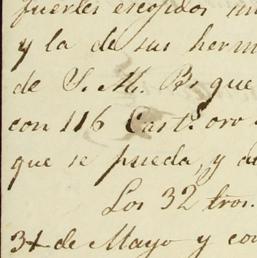 fuertes escojidos
y la de sus herm
de S. M. Bs que
con 116 Casts. oro
que se pueda, y de
Los 32 tros.
31 de Mayo y con